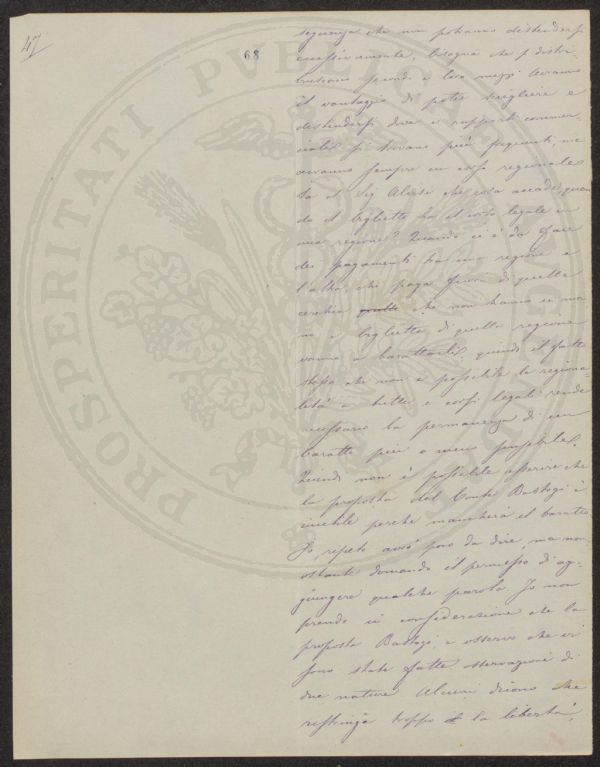 47
68
seguenza che non potranno distendersi
eccessivamente, bisogna che si distri-
buiscano secondo i loro mezzi. Avranno
il vantaggio di poter scegliere e
distendersi dove i rapporti commer-
ciali si trovano più frequenti, ma
avranno sempre un corso regionale
Sa il Sig Alvisi che cosa accade quan
do il biglietto ha il corso legale in
una regione? Quando ci è da fare
dei pagamenti tra una regione e
l'altra chi paga fuori di quella
cerchia quelli che non hanno in ma
no i biglietti di quella regione
vanno a barattarli, quindi il fatto
stesso che non è possibile la regiona-
lità a tutti i corsi legali rende
necessario la permanenza di un
baratto più o meno possibile.
Quindi non è possibile asserire che
la proposta del Conte Bastogi è
inutile perché mancherà il baratto
Io, ripeto avrò poco da dire, ma non-
ostante domando il permesso d'ag-
giungere qualche parola. Io non
prendo in considerazione che la
proposta Bastogi, e osservo che vi
sono state fatte osservazioni di
due nature. Alcuni dicono che
restringa troppo la libertà,
PROSPERITATI PVBLICAE